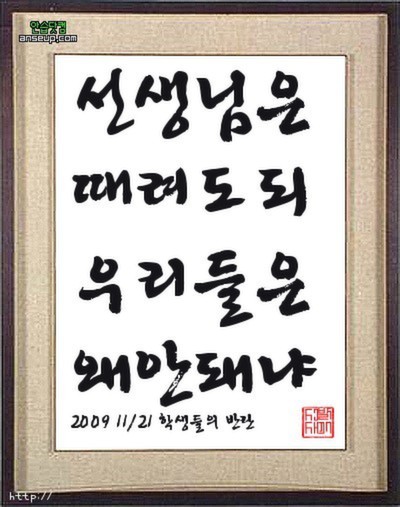 안습닷컴
anseup.com
선생님은
때려도 되
우리들은
왜 안돼냐
2009 11/21 학생들의 반란
http://